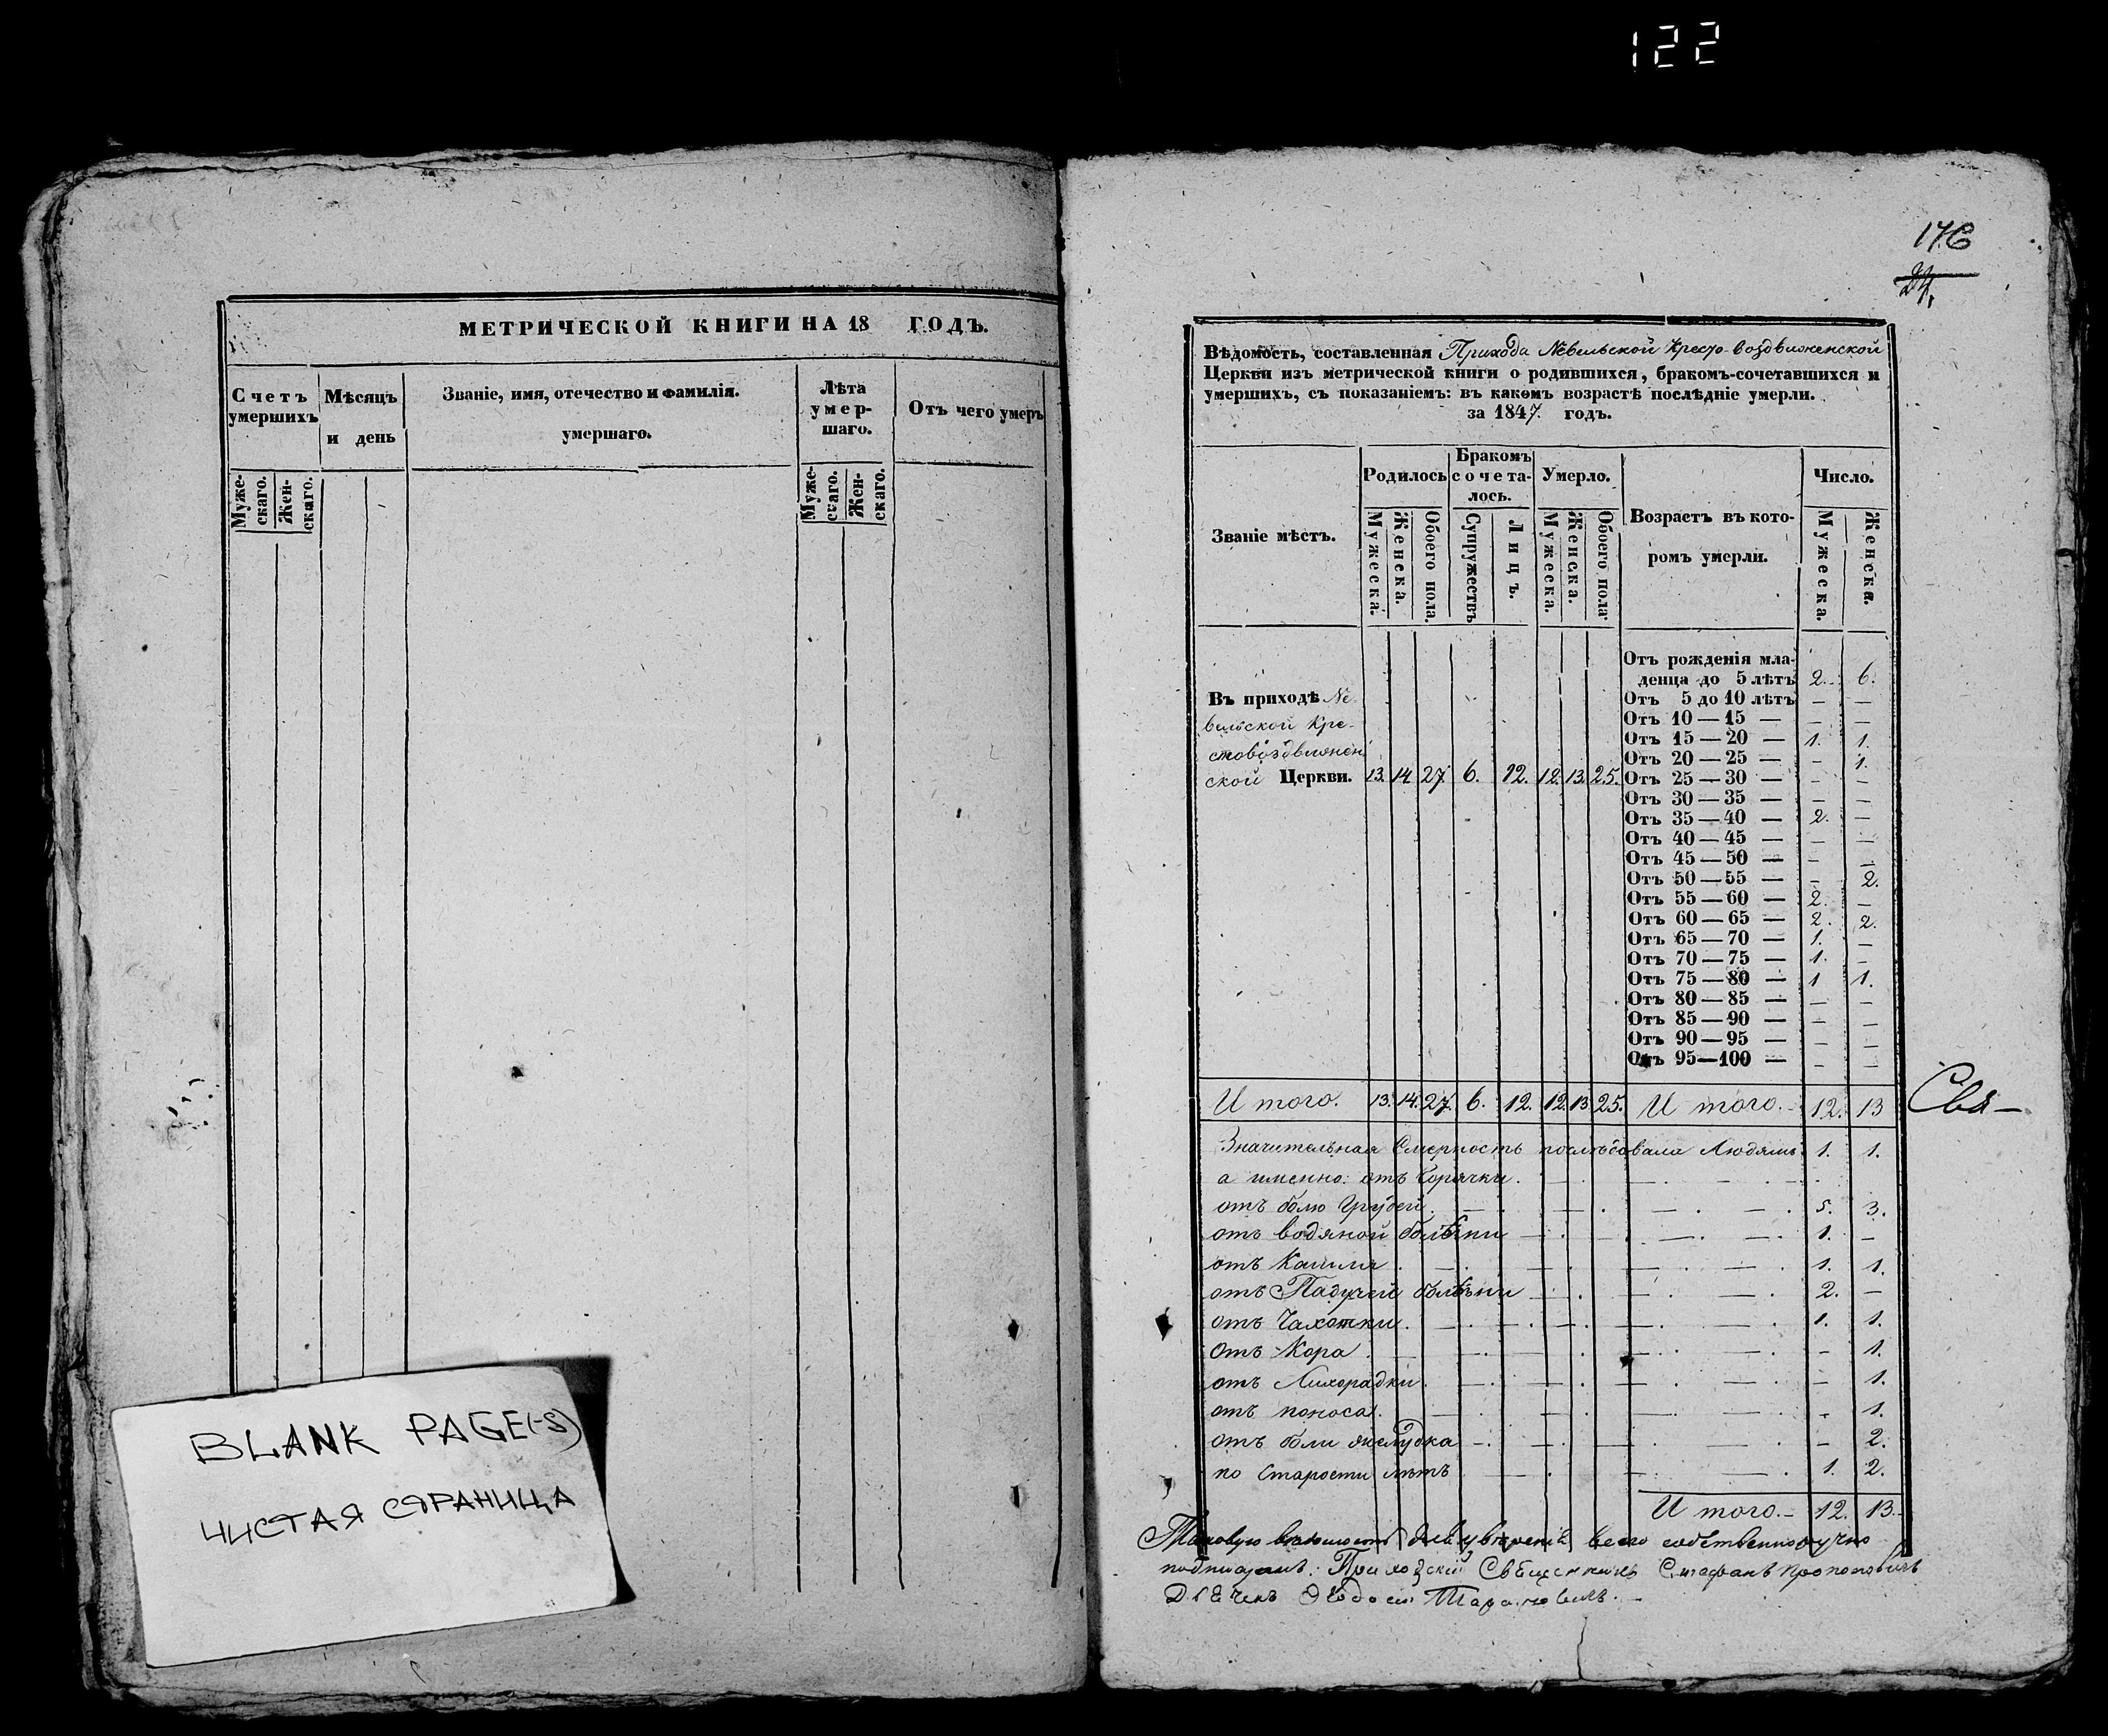 122
МЕТРИЧЕСКОЙ КНИГИ НА 18 ГОДЪ.
Счетъ умершихъ
Мѣсяцъ и день
Званіе, имя, отечество и фамилія.
умершаго.
Лѣта умер-шаго.
Отъ чего умеръ
Муже-скаго.
Жен-скаго.
Муже-скаго.
Жен-скаго.
BLANK PAGE(-S)
ЧИСТАЯ СТРАНИЦА
176
Вѣдомость, составленная Прихода Невельской Кресто-воздвиженской
Церкви изъ метрической книги о родившихся, бракомъ-сочетавшихся и
умершихъ, съ показаніемъ: въ какомъ возрастѣ послѣдніе умерли.
за 1847. годъ.
Званіе мѣстъ.
Родилось
Бракомъ сочета-лось.
Умерло.
Возрастъ въ кото-ромъ умерли.
Число.
Мужеска.
Женска.
Обоего пола.
Супружествъ
Лицъ.
Мужеска.
Женска.
Обоего пола
Мужеска.
Женска.
Въ приходѣ Не-
вельской Кре-
стовоздвижен
ской Церкви. 13. 14 27 6. 12. 12. 13. 25.
Отъ рожденія мла-
денца до 5 лѣтъ 2. 6.
Отъ 5 до 10 лѣтъ — —
Отъ 10 — 15 — — —
Отъ 15 — 20 — 1. 1.
Отъ 20 — 25 — — 1.
Отъ 25 — 30 — — —
Отъ 30 — 35 — — —
Отъ 35 — 40 — 2. —
Отъ 40 — 45 — — —
Отъ 45 — 50 — — —
Отъ 50 — 55 — — 2.
Отъ 55 — 60 — 2. —
Отъ 60 — 65 — 2. 2.
Отъ 65 — 70 — 1. —
Отъ 70 — 75 — 1. —
Отъ 75 — 80 — 1 1.
Отъ 80 — 85 — — —
Отъ 85 — 90 — — —
Отъ 90 — 95 — — —
Отъ 95—100 — — —
И того. 13. 14. 27. 6. 12. 12. 13 25. И того. 12. 13
Свя-
Значительная Смерность послѣдовала Людямъ 1. 1.
а именно: отъ Горячки.
отъ болю Грудей. 5. 3.
отъ водяной болѣзни 1. —
отъ Кашля. 1. 1.
отъ Падучей болѣзни 2. —
отъ Чахотки. 1. 1.
отъ Кора. — 1.
отъ Лихорадки. — 1.
отъ поноса. — 1.
отъ боли желудка — 2.
по Старости лѣтъ 1. 2.
И того. 12. 13.
Таковую всего собственноручно
Приходскій Священникъ Стефанъ